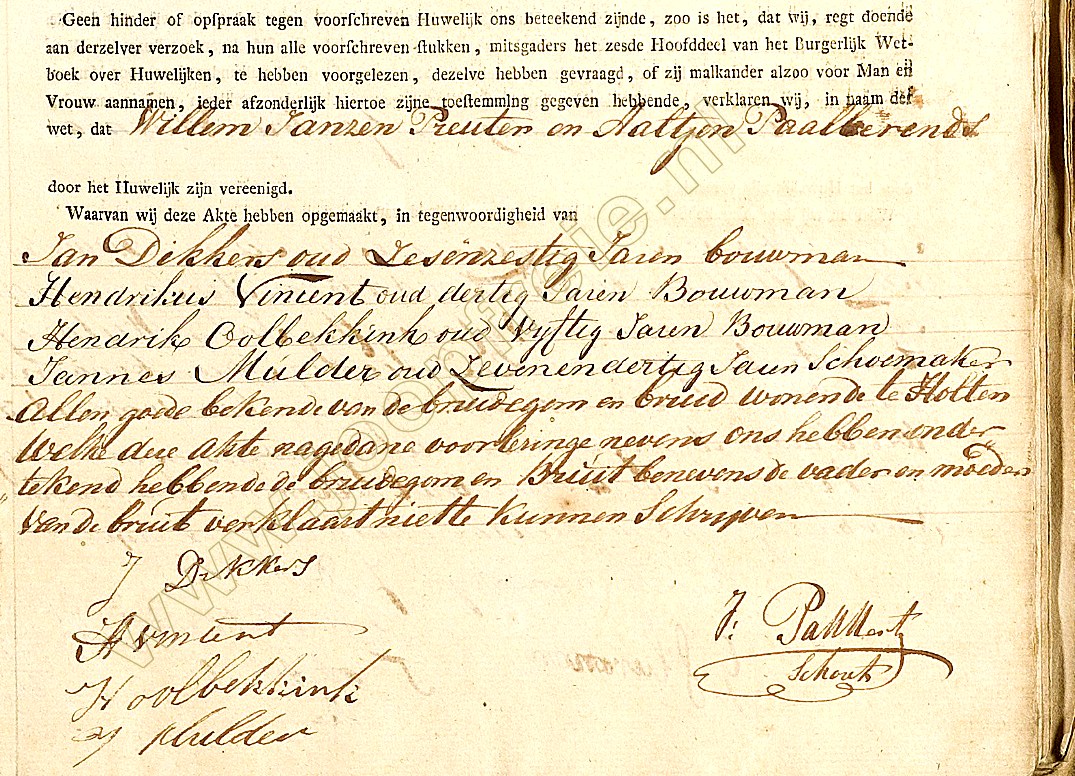 Geen hinder of opſpraak tegen voorſchreven Huwelijk ons beteekend zijnde, zoo is het, dat wij, regt doende
aan derzelver verzoek, na hun alle voorſchreven ſtukken, mitsgaders het zesde Hoofddeel van het Burgerlijk Wet-
boek over Huwelijken, te hebben voorgelezen, dezelve hebben gevraagd, of zij malkander alzoo voor Man en
Vrouw aannamen, ieder afzonderlijk hiertoe zijne toeſtemmlng gegeven hebbende, verklaren wij, in naam der
wet, dat Willem Janzen Preuter en Aaltjen Paalberends
door het Huwelijk zijn vereenigd.
Waarvan wij deze Akte hebben opgemaakt, in tegenwoordigheid van
Jan Dikkers oud Sesënzestig Jaren bouwman
Hendrikus Vincent oud dertig Jaren Bouwman
Hendrik Oolbekkink oud Vyftig Jaren Bouwman
Jannes Mulder oud Zevenendertig Jaren Schoemaker
Allen goede bekende van de bruidegom en bruid wonende te Holten
Welke deze Akte nagedane voorleringe nevens ons hebben onder
tekend hebbende de bruidegom en Bruit benevens de vader en moeder
Van de bruit verklaart niet te kunnen Schryven
J Dikkers
H Vincent
H oolbekkink
J Mulder
J:
Schout
www.genealogie.nl